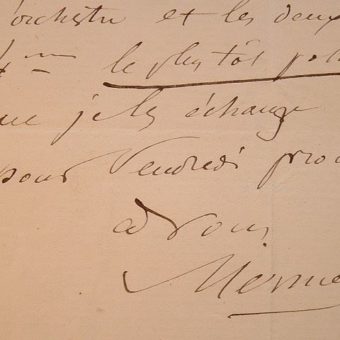 l'orchestre et les deux
le plus tôt pos
que je les échange
pour Vendredi proc
à vous